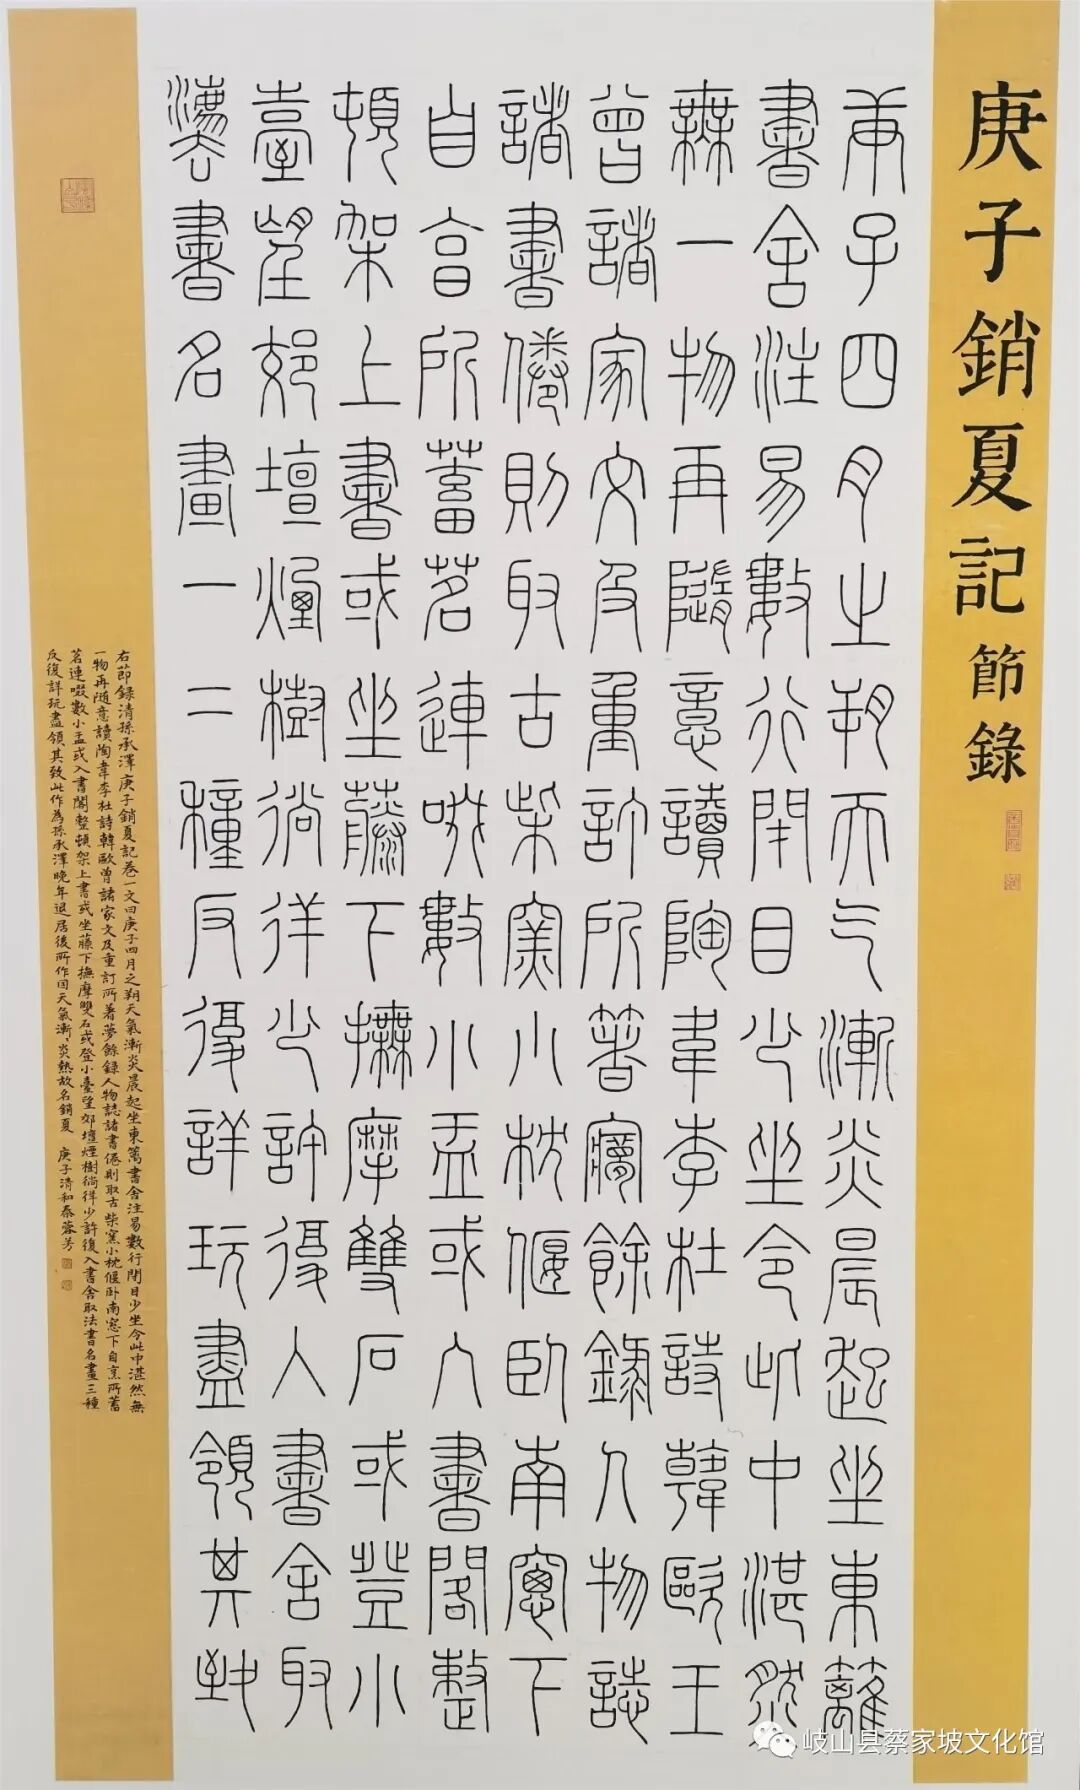 庚子銷夏記節錄
庚子四月之朔天气漸炎晨起坐東籬
書舍注易數行閉目少坐令此中湛然
無一物再隨意讀陶韋李杜詩韓歐王
曾諸家文及重訂所著夢餘錄人物誌
諸書倦則取古柴窯小枕偃卧南窗下
自亯所蓄茗連啜數小盂或入書閣整
頓架上書或坐藤下撫摩雙石或登小
臺望郊壇煙樹徜徉少許復入書舍取
灋書名畫一二種反復詳玩盡領其致
右節錄清孫承澤庚子銷夏記卷一文曰庚子四月之朔天氣漸炎晨起坐東籬書舍注易數行閉目少坐令此中湛然無
一物再随意讀陶韋李杜詩韓歐曾諸家文及重訂所著夢餘錄人物誌諸書倦則取古柴窯小枕偃卧南窓下自烹所蓄
茗連啜數小盂或入書閣整頓架上書或坐藤下撫摩雙石或登小臺望郊壇煙樹徜徉少許復入書舍取法書名畫三種
反復詳玩盡領其致此作為孫承澤晚年退居後所作因天氣漸〻炎熱故名銷夏 庚子清和秦蓉芳
岐山县蔡家坡文化馆